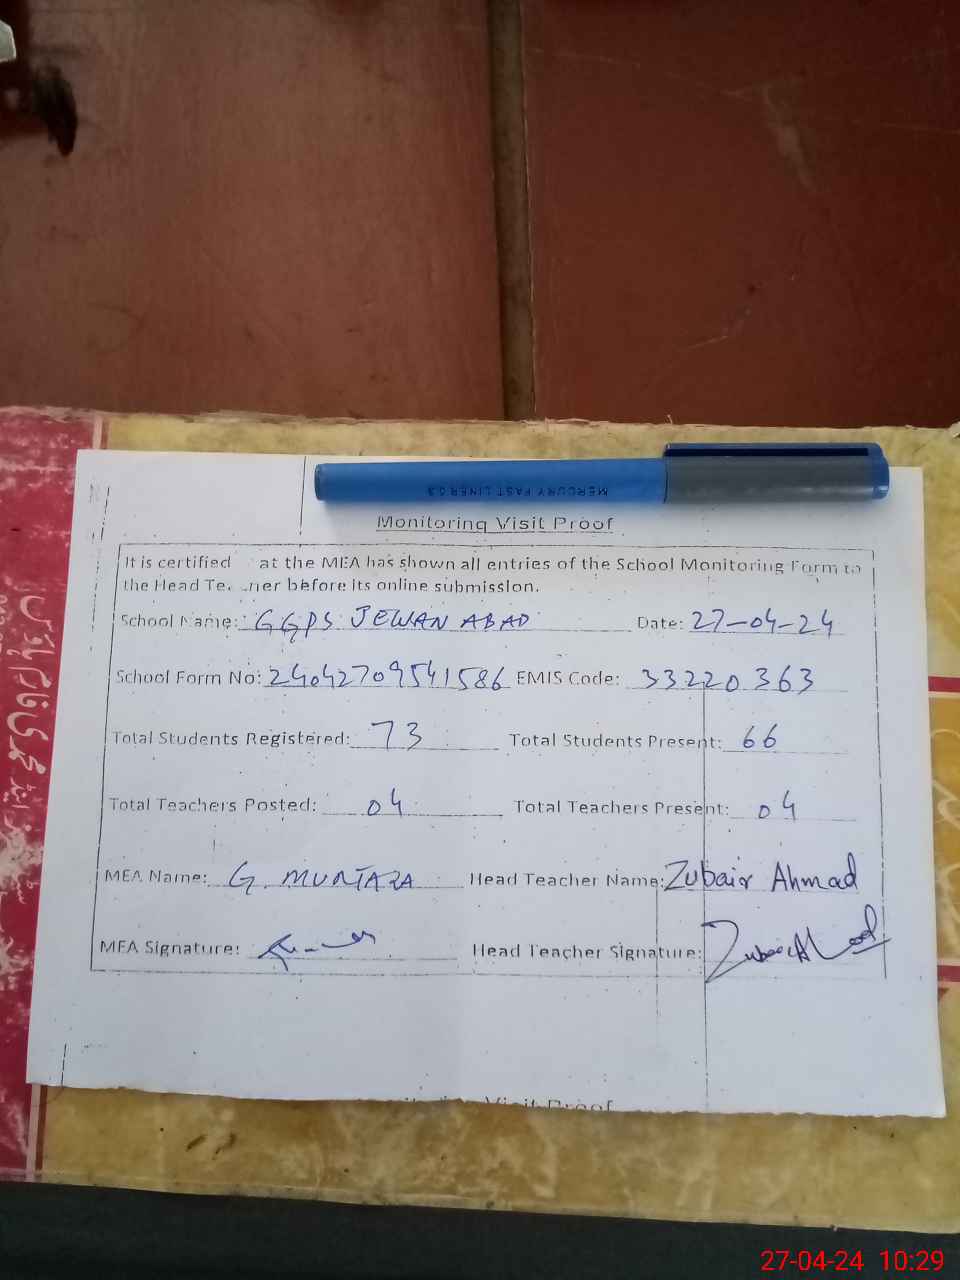 MERCURY FAST LINER 0.3
Monitoring Visit Proof
It is certified at the MEA has shown all entries of the School Monitoring Form to
the Head Te. .ner before its online submission.
School Name: GGPS JEWAN ABAD Date: 27-04-24
School Form No: 24042709541586 EMIS Code: 33220363
Total Students Registered: 73 Total Students Present: 66
Total Teachers Posted: 04 Total Teachers Present: 04
MEA Name: G. MURTAZA Head Teacher Name: Zubair Ahmad
MEA Signature: Head Teacher Signature:
Visit Proof
27-04-24 10:29